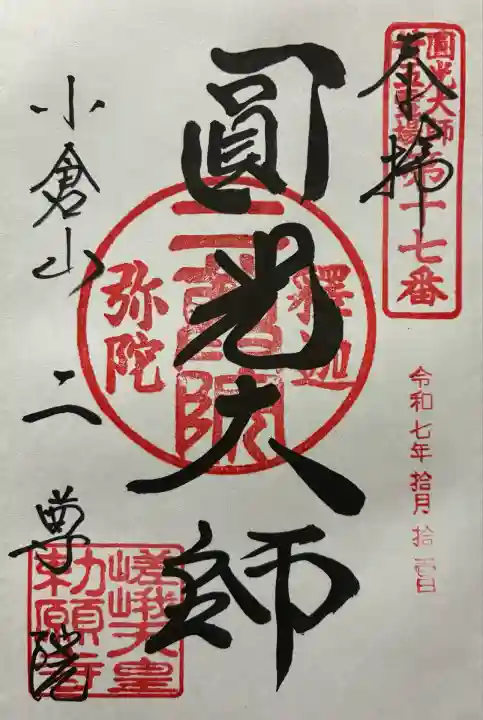 奉拝
圓光大師
廿五霊場
第十七番
令和七年拾月拾壹日
圓光大師
釋迦
二尊院
弥陀
小倉山二尊院
嵯峨天皇
勅願寺